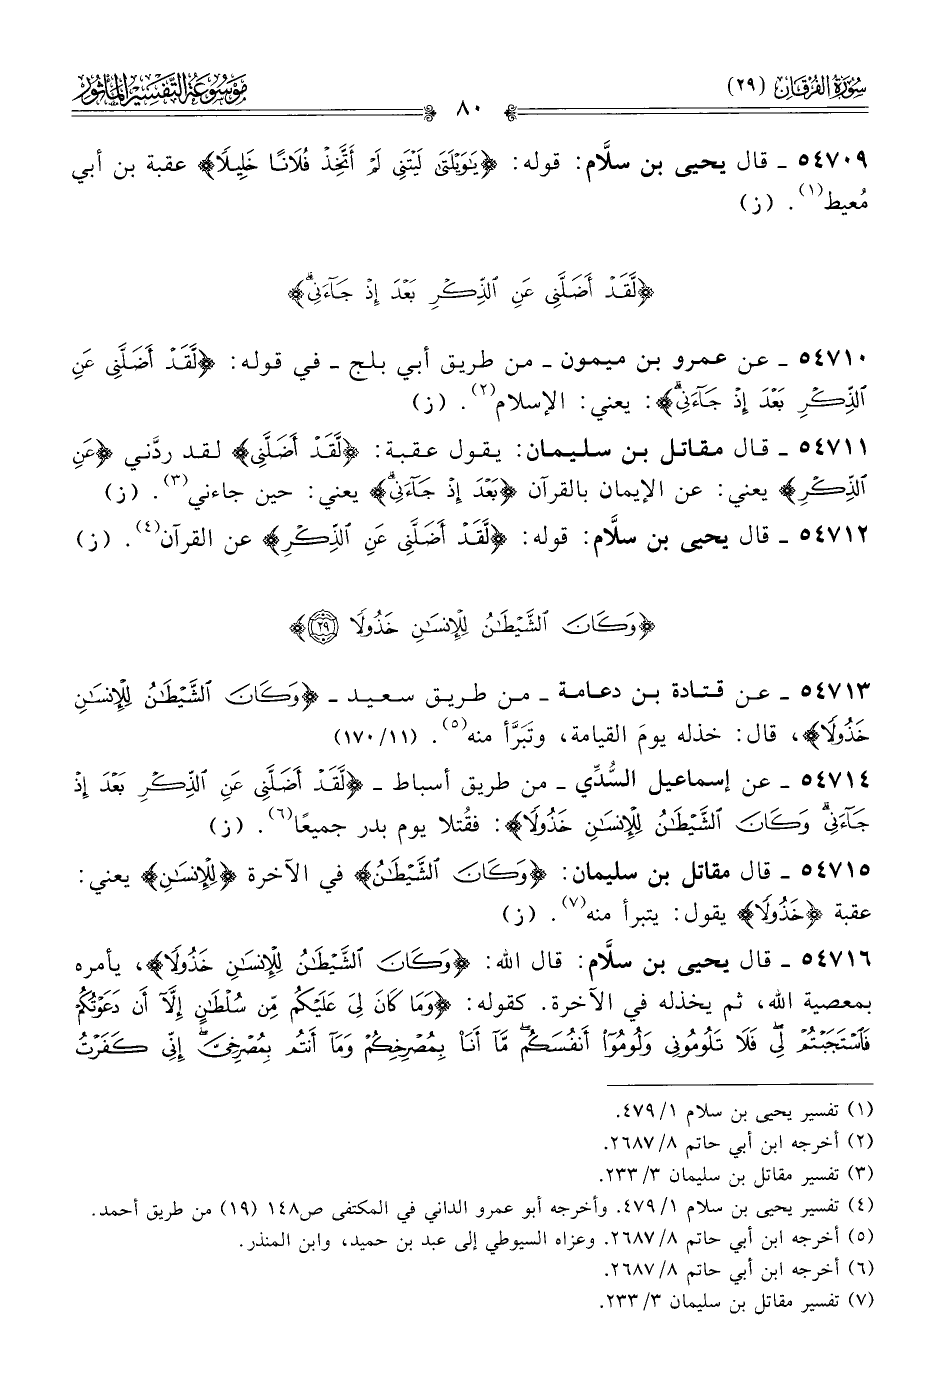 سُورَةُ الفُرْقَانِ (٢٩)
٨٠
مَوْسُوعَةُ التَّفْسِيرِ المَأْثُورِ
٥٤٧٠٩ ـ قال يحيى بن سلَّام: قوله: ﴿يَٰوَيْلَتَىٰ لَيْتَنِى لَمْ أَتَّخِذْ فُلَانًا خَلِيلًا﴾ عقبة بن أبي
مُعيط(١). (ز)
﴿لَّقَدْ أَضَلَّنِى عَنِ ٱلذِّكْرِ بَعْدَ إِذْ جَآءَنِىۗ﴾
٥٤٧١٠ ـ عن عمرو بن ميمون ـ من طريق أبي بلج ـ في قوله: ﴿لَّقَدْ أَضَلَّنِى عَنِ
ٱلذِّكْرِ بَعْدَ إِذْ جَآءَنِىۗ﴾: يعني: الإسلام(٢). (ز)
٥٤٧١١ ـ قال مقاتل بن سليمان: يقول عقبة: ﴿لَّقَدْ أَضَلَّنِى﴾ لقد ردَّني ﴿عَنِ
ٱلذِّكْرِ﴾ يعني: عن الإيمان بالقرآن ﴿بَعْدَ إِذْ جَآءَنِىۗ﴾ يعني: حين جاءني(٣). (ز)
٥٤٧١٢ ـ قال يحيى بن سلَّام: قوله: ﴿لَّقَدْ أَضَلَّنِى عَنِ ٱلذِّكْرِ﴾ عن القرآن(٤). (ز)
﴿وَكَانَ ٱلشَّيْطَٰنُ لِلْإِنسَٰنِ خَذُولًا ٢٩﴾
٥٤٧١٣ ـ عن قتادة بن دعامة ـ من طريق سعيد ـ ﴿وَكَانَ ٱلشَّيْطَٰنُ لِلْإِنسَٰنِ
خَذُولًا﴾، قال: خذله يومَ القيامة، وتَبَرَّأ منه(٥). (١١/ ١٧٠)
٥٤٧١٤ ـ عن إسماعيل السُّدِّي ـ من طريق أسباط ـ ﴿لَّقَدْ أَضَلَّنِى عَنِ ٱلذِّكْرِ بَعْدَ إِذْ
جَآءَنِىۗ وَكَانَ ٱلشَّيْطَٰنُ لِلْإِنسَٰنِ خَذُولًا﴾: فقُتلا يوم بدر جميعًا(٦). (ز)
٥٤٧١٥ ـ قال مقاتل بن سليمان: ﴿وَكَانَ ٱلشَّيْطَٰنُ﴾ في الآخرة ﴿لِلْإِنسَٰنِ﴾ يعني:
عقبة ﴿خَذُولًا﴾ يقول: يتبرأ منه(٧). (ز)
٥٤٧١٦ ـ قال يحيى بن سلَّام: قال الله: ﴿وَكَانَ ٱلشَّيْطَٰنُ لِلْإِنسَٰنِ خَذُولًا﴾، يأمره
بمعصية الله، ثم يخذله في الآخرة. كقوله: ﴿وَمَا كَانَ لِىَ عَلَيْكُم مِّن سُلْطَٰنٍ إِلَّآ أَن دَعَوْتُكُمْ
فَٱسْتَجَبْتُمْ لِىۖ فَلَا تَلُومُونِى وَلُومُوٓا۟ أَنفُسَكُمۖ مَّآ أَنَا۠ بِمُصْرِخِكُمْ وَمَآ أَنتُم بِمُصْرِخِىَّۖ إِنِّى كَفَرْتُ
(١) تفسير يحيى بن سلام ١/ ٤٧٩.
(٢) أخرجه ابن أبي حاتم ٨/ ٢٦٨٧.
(٣) تفسير مقاتل بن سليمان ٣/ ٢٣٣.
(٤) تفسير يحيى بن سلام ١/ ٤٧٩. وأخرجه أبو عمرو الداني في المكتفى ص١٤٨ (١٩) من طريق أحمد.
(٥) أخرجه ابن أبي حاتم ٨/ ٢٦٨٧. وعزاه السيوطي إلى عبد بن حميد، وابن المنذر.
(٦) أخرجه ابن أبي حاتم ٨/ ٢٦٨٧.
(٧) تفسير مقاتل بن سليمان ٣/ ٢٣٣.